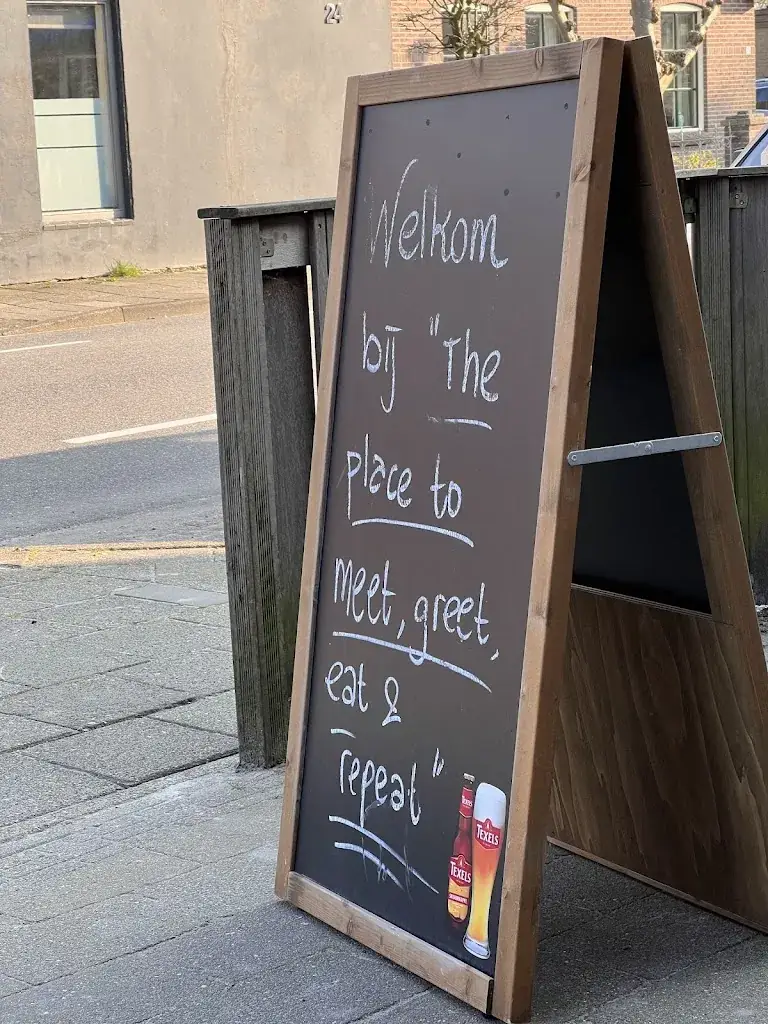 24
Welkom
bij "The
place to
meet, greet,
eat &
repeat"
TEXELS
TEXELS